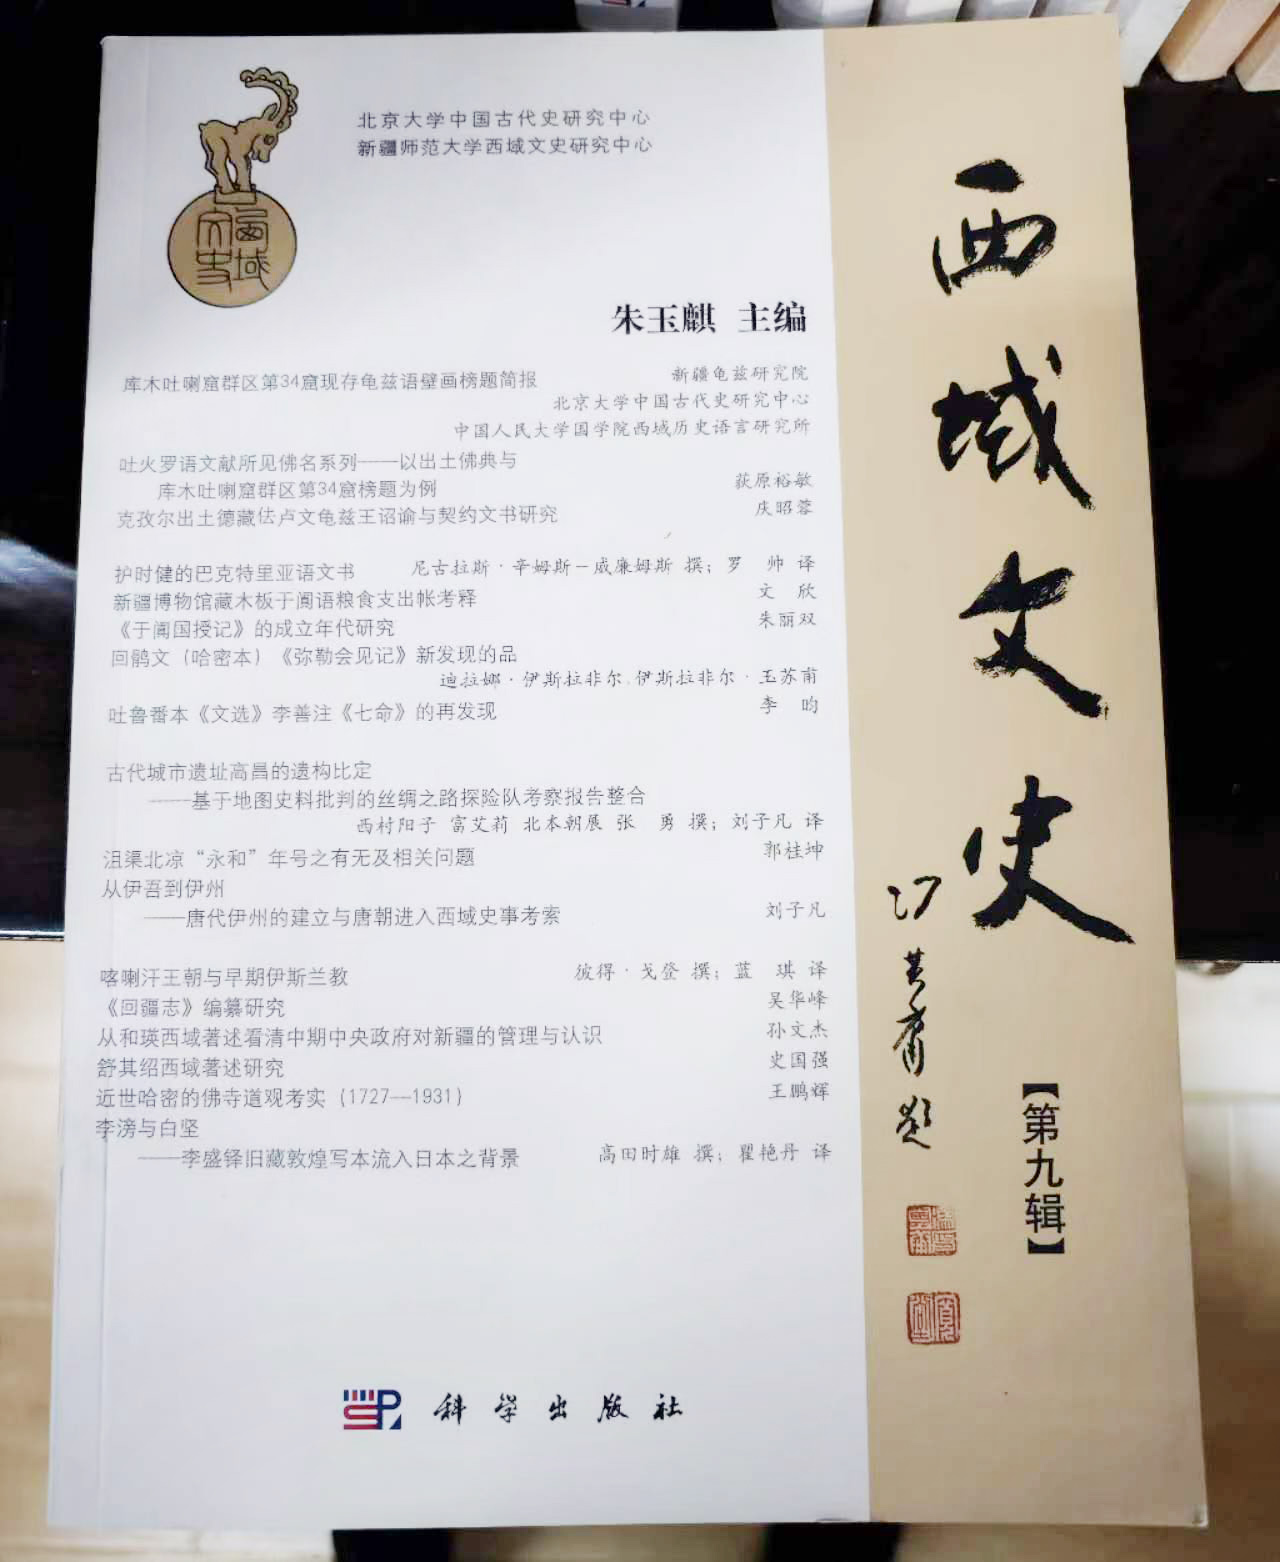 北京大学中国古代史研究中心
新疆师范大学西域文史研究中心
西域
文史
朱玉麒 主编
库木吐喇窟群区第34窟现存龟兹语壁画榜题简报 新疆龟兹研究院
北京大学中国古代史研究中心
中国人民大学国学院西域历史语言研究所
吐火罗语文献所见佛名系列——以出土佛典与
库木吐喇窟群区第34窟榜题为例 荻原裕敏
克孜尔出土德藏佉卢文龟兹王诏谕与契约文书研究 庆昭蓉
护时健的巴克特里亚语文书 尼古拉斯·辛姆斯－威廉姆斯 撰；罗 帅 译
新疆博物馆藏木板于阗语粮食支出帐考释 文 欣
《于阗国授记》的成立年代研究 朱丽双
回鹘文（哈密本）《弥勒会见记》新发现的品
迪拉娜·伊斯拉非尔 伊斯拉非尔·玉苏甫
吐鲁番本《文选》李善注《七命》的再发现 李 昀
古代城市遗址高昌的遗构比定
——基于地图史料批判的丝绸之路探险队考察报告整合
西村阳子 富艾莉 北本朝展 张 勇 撰；刘子凡 译
沮渠北凉“永和”年号之有无及相关问题 郭桂坤
从伊吾到伊州
——唐代伊州的建立与唐朝进入西域史事考索 刘子凡
喀喇汗王朝与早期伊斯兰教 彼得·戈登 撰；蓝 琪 译
《回疆志》编纂研究 吴华峰
从和瑛西域著述看清中期中央政府对新疆的管理与认识 孙文杰
舒其绍西域著述研究 史国强
近世哈密的佛寺道观考实（1727—1931） 王鹏辉
李滂与白坚
——李盛铎旧藏敦煌写本流入日本之背景 高田时雄 撰；瞿艳丹 译
科学出版社
西域文史
冯其庸题
【第九辑】